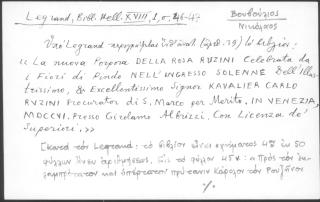 Legrand, Bibl. Hell. XVIII, 1, σ. 46-47
Βουβούλιος
Νικόλαος
Ὑπὸ Legrand περιγράφεται
« La nuova Porpora DELLA ROSA RUZINI Celebrata da
i Fiori da Pindo NELL'INGRESSO SOLENNE Dell'Illus-
trissimo, & Excellentissimo Signor KAVALIER CARLO
RUZINI Procurator di S. Marco per Merito. IN VENEZIA,
MDCCVI. Presso Girolamo Albrizzi. Con Licenza de'
Superiori. »
[κατὰ τὸν Legrand: τὸ βιβλίον εἶναι σχήματος 4ον ἐκ 50
φύλλων ἄνευ ἀριθμήσεως, εἰς τὸ φύλλον 45α: πρὸς τὸν
καὶ Κάρολον τὸν Ρουζῖνον
./.